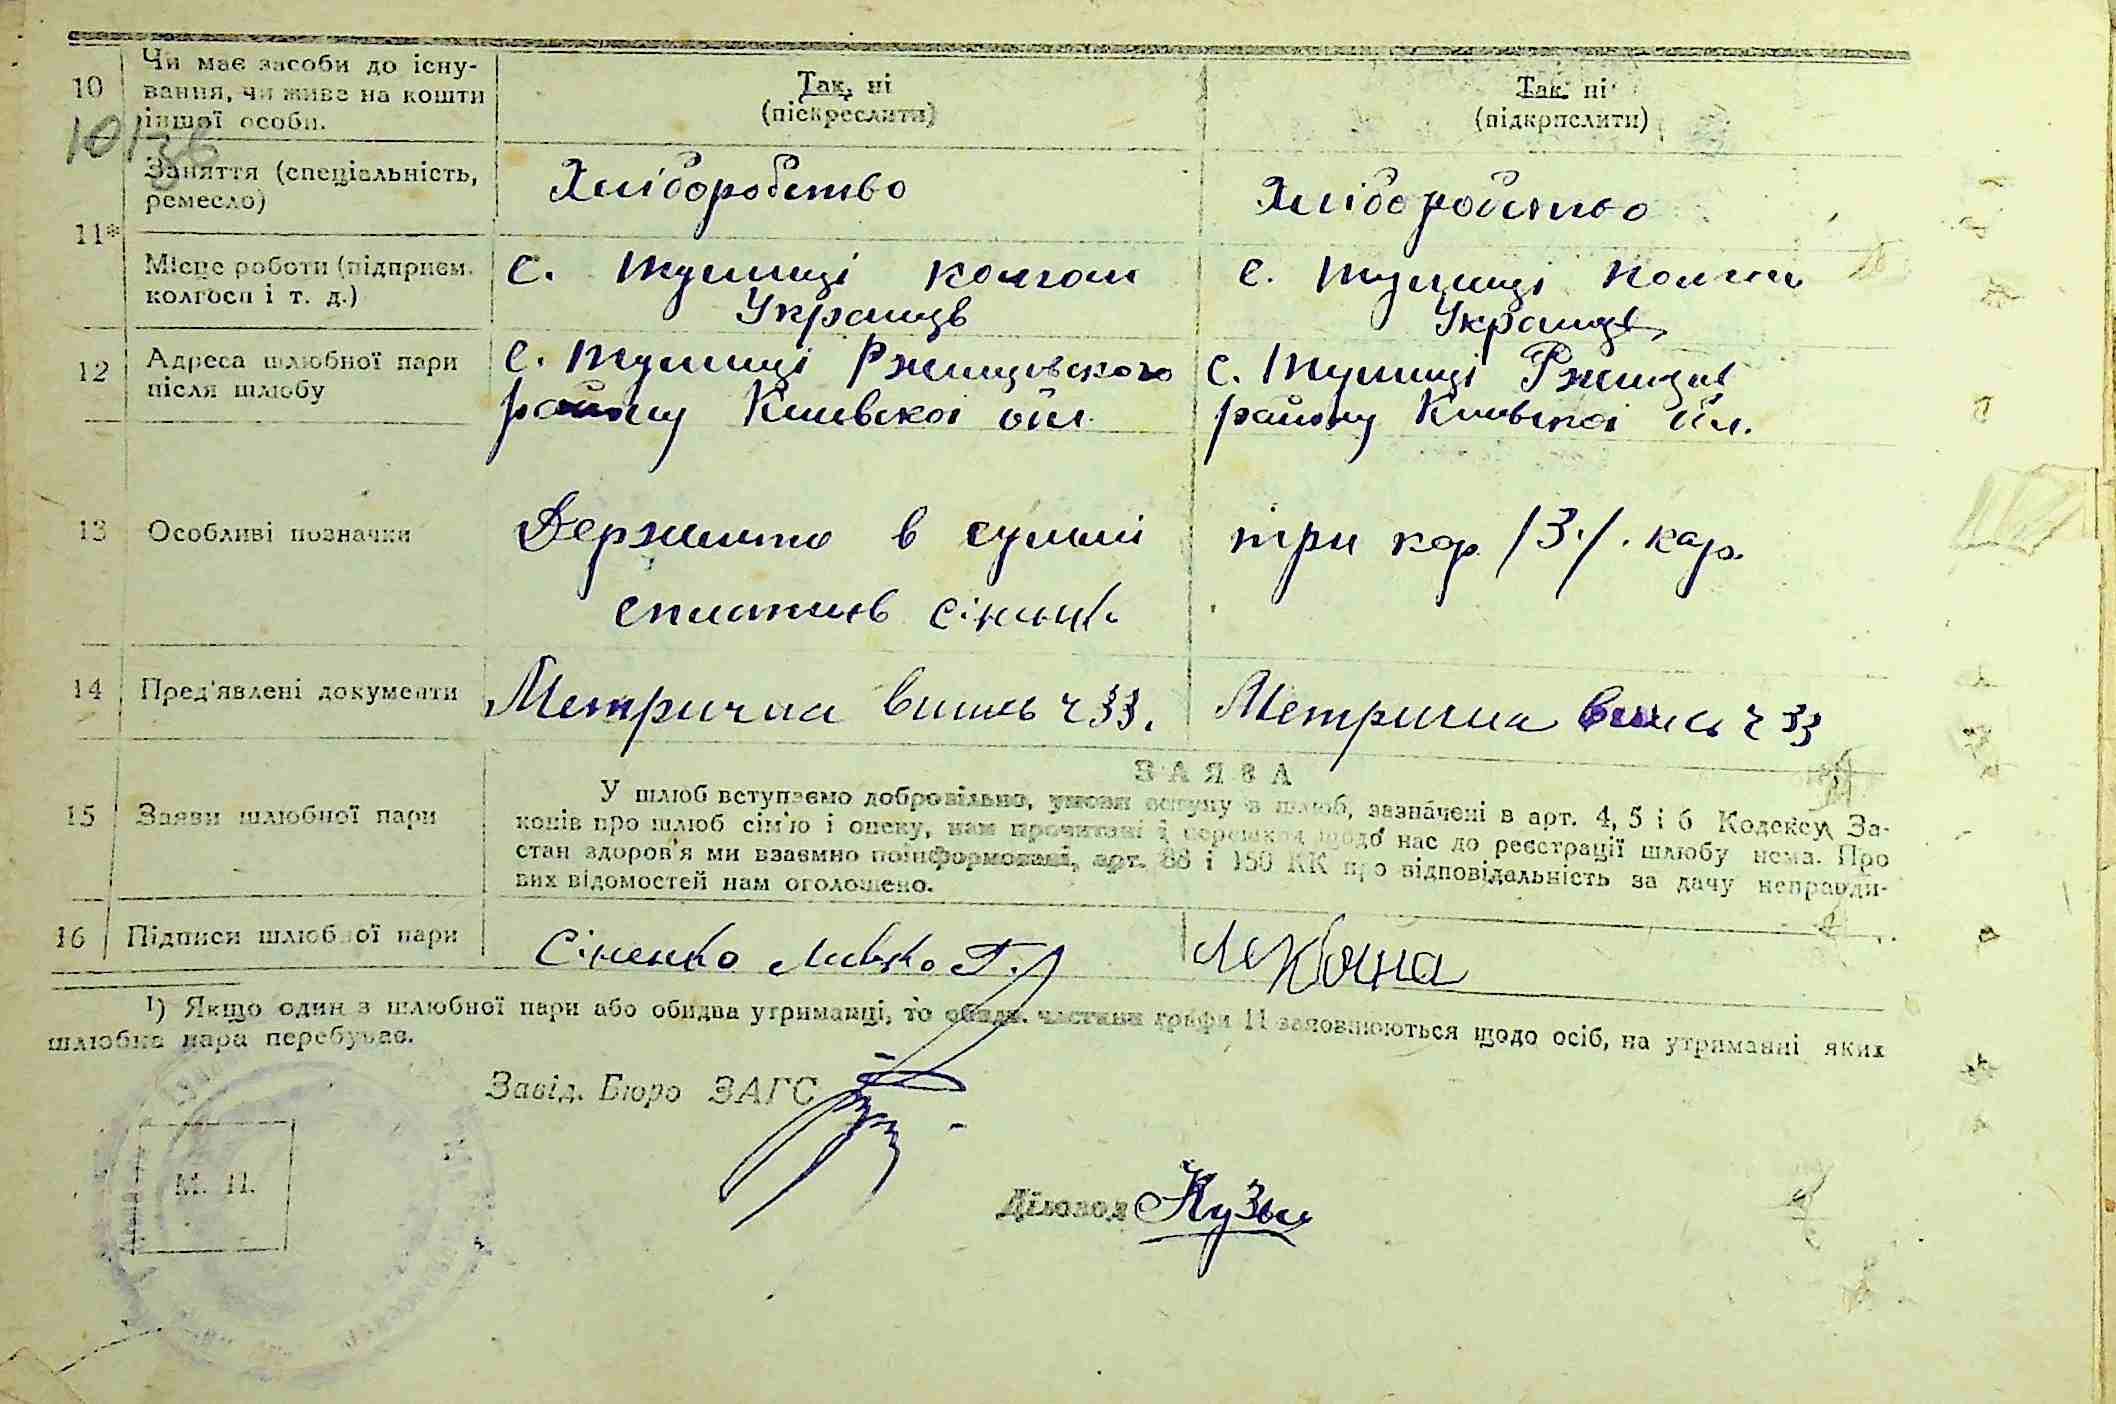 10 Чи має засоби до існу-
вання, чи живе на кошти
іншої особи.
Так, ні
(піскреслити)
Так, ні
(підкрпслити)
11* Заняття (спеціальність,
ремесло)
Хліборобство
Хліборобство
Місце роботи (підприєм.
колгосп і т. д.)
с. Тулинці колгосп
Українців
с. Тулинці
12 Адреса шлюбної пари
після шлюбу
с. Тулинці Ржищівского
району Київскоі обл.
с. Тулинці Ржищів
району Київскоі обл.
13 Особливі позначки
Держмито в суммі
три кар /3/. кар.
сплатив Сіненко
14 Пред'явлені документи
Метрична випись ч 33.
Метрична випись ч 33
15 Заяви шлюбної пари
ЗАЯВА
У шлюб вступаємо добровільно, умови вступу в шлюб, зазначені в арт. 4, 5 і 6 Кодексу За-
конів про шлюб сім'ю і опеку, нам прочитані і перешкод щодо нас до реєстрації шлюбу нема. Про
стан здоров'я ми взаємно поінформовані, арт. 88 і 150 КК про відповідальність за дачу неправди-
вих відомостей нам оголошено.
16 Підписи шлюбної пари
Сіненко Левко Г.
¹) Якщо один з шлюбної пари або обидва утриманці, то обидв. частини графи 11 заповнюються щодо осіб, на утриманні яких
шлюбна пара перебуває.
Завід. Бюро ЗАГС
М. П.
Діловод